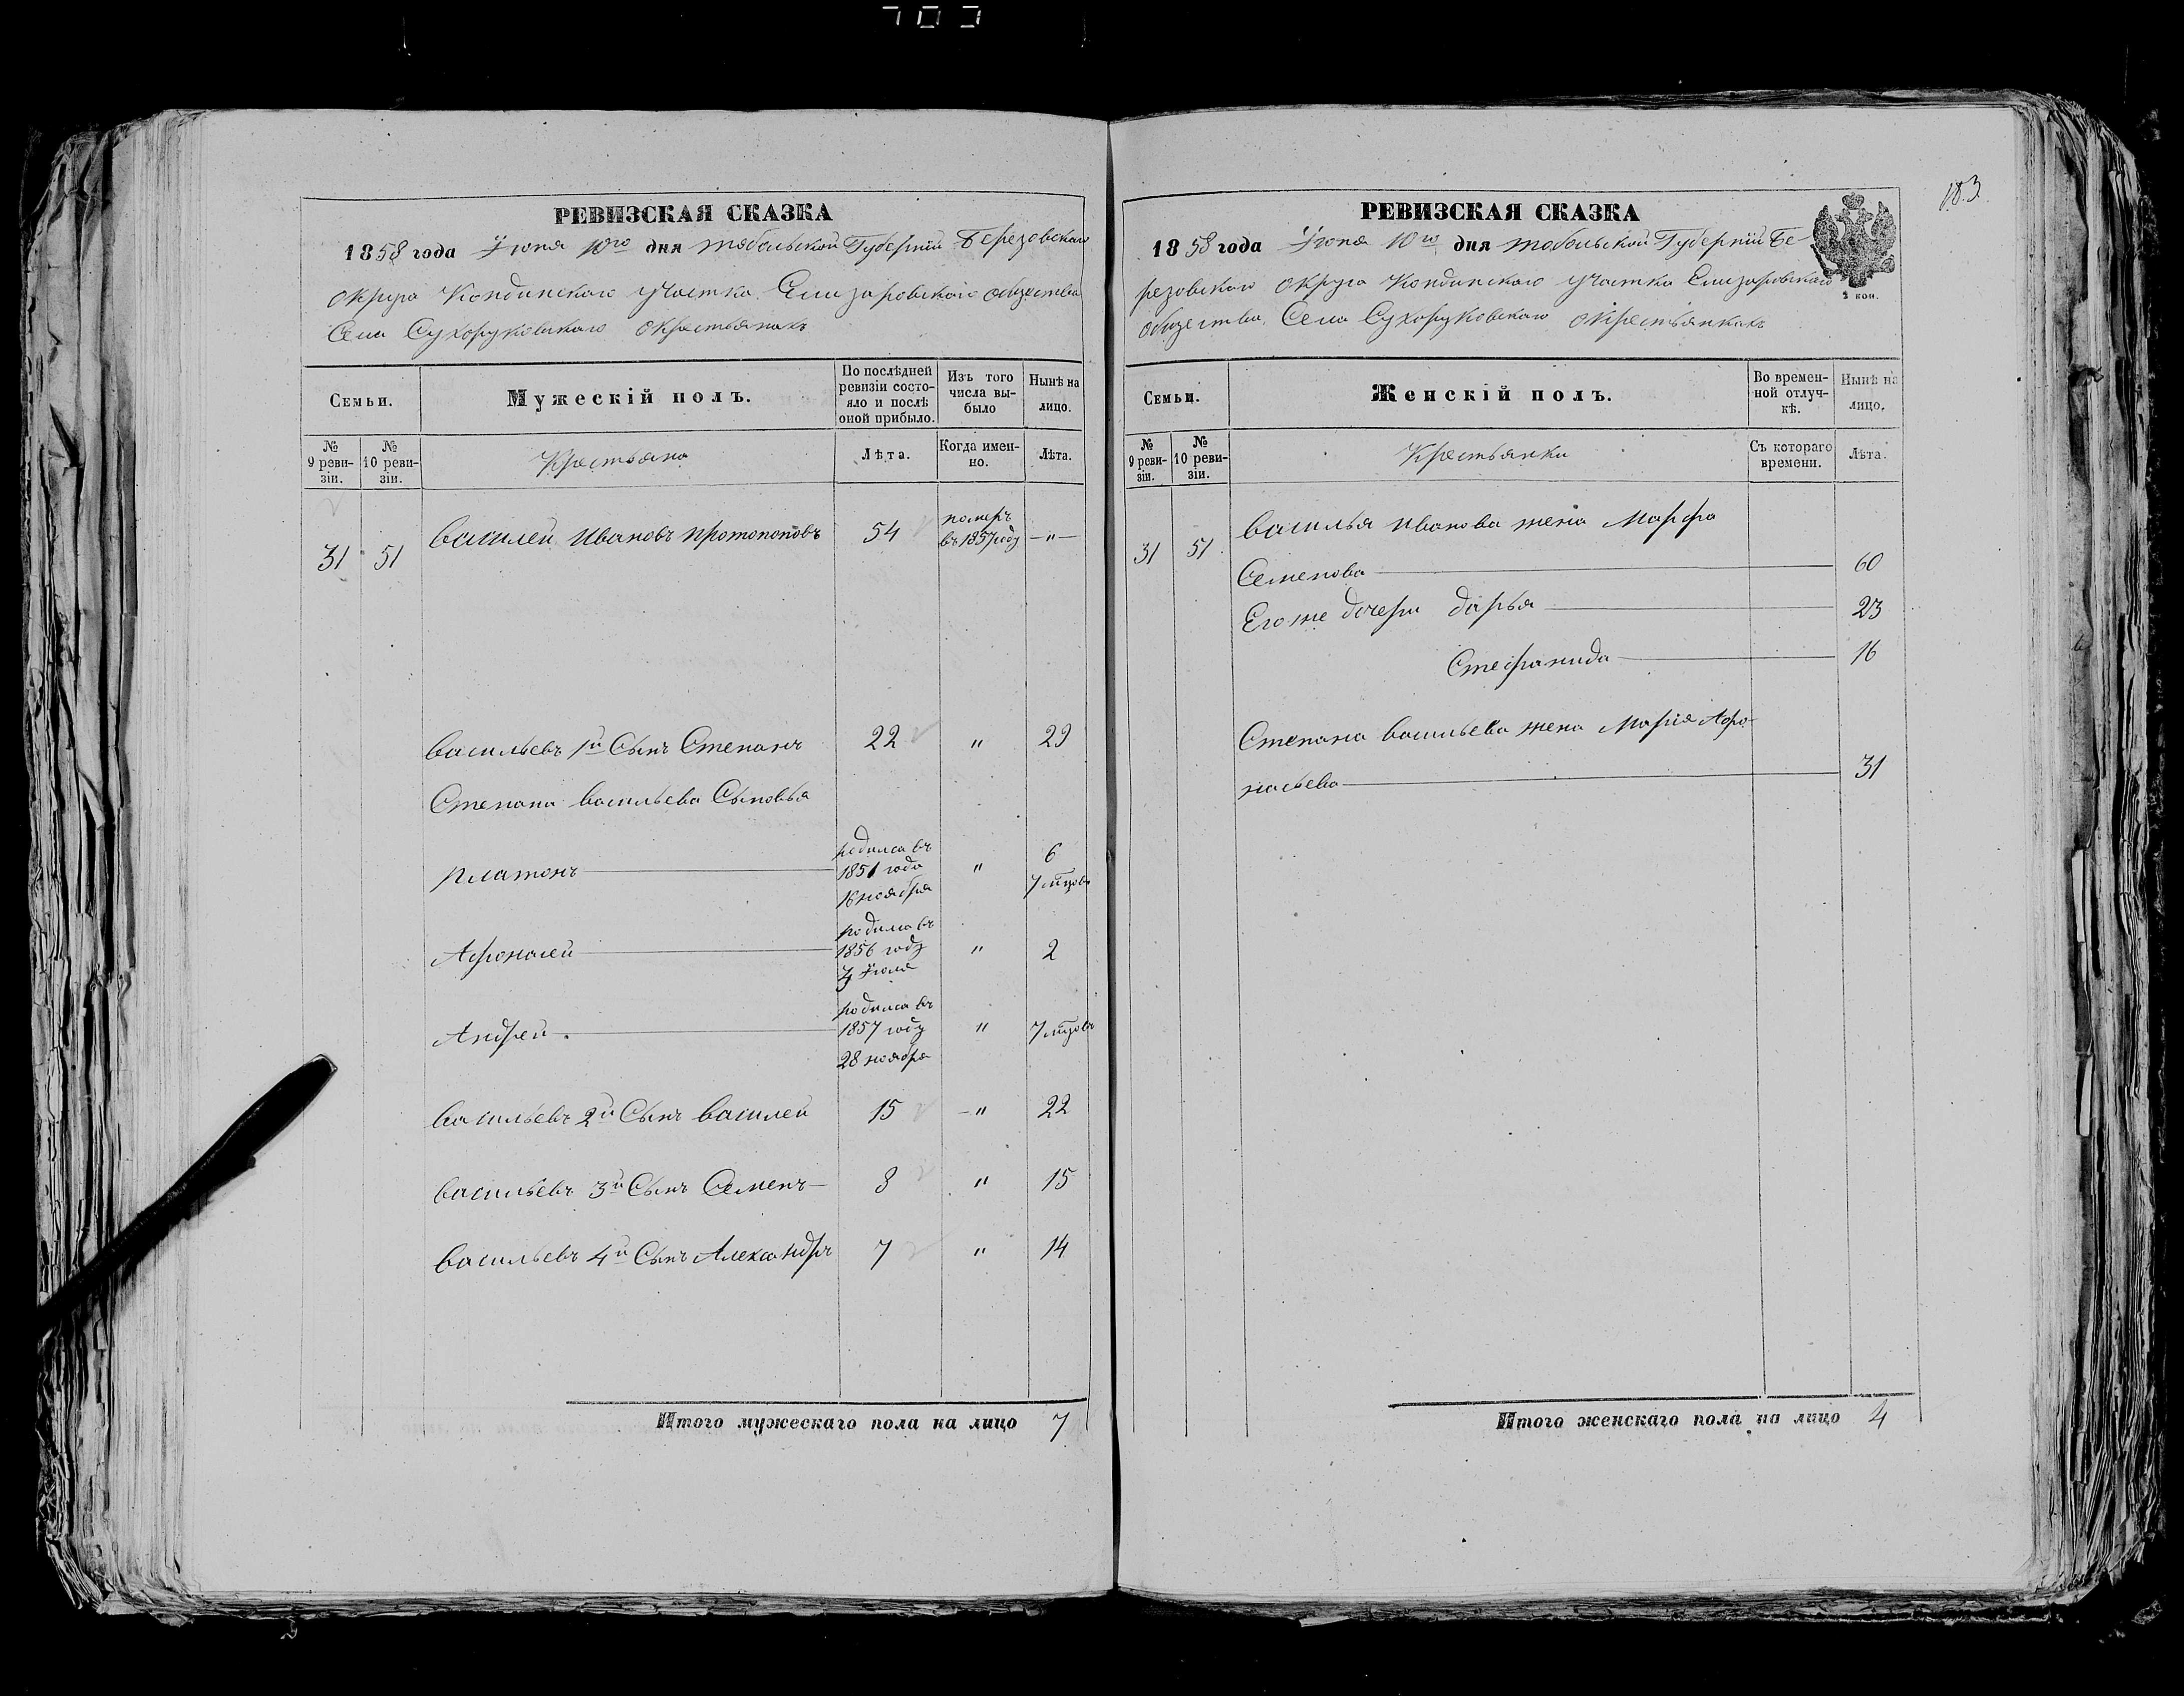 703
183
РЕВИЗСКАЯ СКАЗКА
1858 года Іюня 10го дня Тобольской Губерніи Березовскаго
округа Кондинскаго участка Елизаровскаго общества
Села Сухоруковскаго окрестьянахъ
Семьи.
Мужескій полъ.
По послѣдней ревизіи состо-
яло и послѣ
оной прибыло.
Изъ того
числа вы-
было
Нынѣ на
лицо.
№
9 реви-
зіи.
№
10 реви-
зіи.
Крестьяне
Лѣта.
Когда имен-
но.
Лѣта.
31 51 Василей Ивановъ Протопоповъ 54 померъ
въ 1857 году —"—
Васильевъ 1й Сынъ Степанъ 22 " 29
Степана Васильева Сыновья
Платонъ родился въ
1851 года
16 ноября " 6
7 мцовъ
Афонасей родился въ
1856 году
Іюля " 2
Андрей родился въ
1857 году
28 ноября " 7 мцовъ
Васильевъ 2й Сынъ Василей 15 —" 22
Васильевъ 3й Сынъ Семенъ 8 " 15
Васильевъ 4й Сынъ Александръ 7 " 14
Итого мужескаго пола на лицо 7
РЕВИЗСКАЯ СКАЗКА
1858 года Іюня 10го дня Тобольской Губерніи Бе-
резовскаго округа Кондинскаго участка Елизаровскаго
общества, Села Сухоруковскаго окрестьянкахъ
2 коп.
Семьи.
Женскій полъ.
Во времен-
ной отлуч-
кѣ.
Нынѣ на
лицо.
№
9 реви-
зіи.
№
10 реви-
зіи.
Крестьянки
Съ котораго
времени.
Лѣта.
31 51 Василья Иванова жена Марфа
Семенова 60
Его же дочери Дарья 23
Стефанида 16
Степана Васильева жена Марія Афо-
насьева 31
Итого женскаго пола на лицо 4